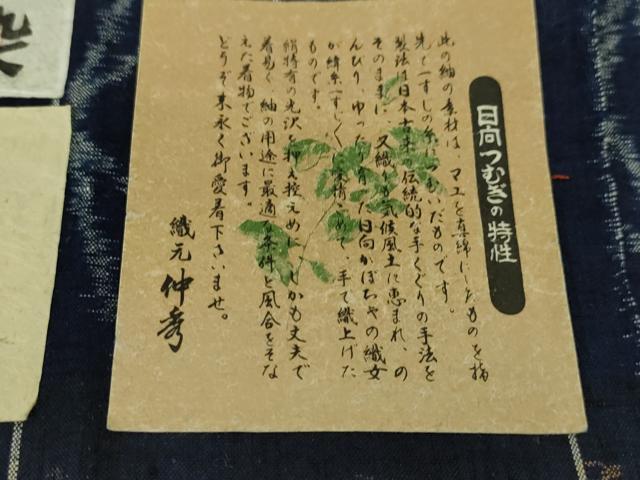 日向つむぎの特性
此の紬の素材は、マユを真綿にしたものを指
先で一すじの糸につむいだものです。
製法は日本古来の伝統的な手くくりの手法を
そのままに、又織りも気候風土に恵まれ、の
んびり、ゆったり育った日向かぼちゃの織女
が緯糸一すじ〱に愛情こめて、手で織上げた
ものです。
絹特有の光沢を押え控えめに、しかも丈夫で
着易く、紬の用途に最適な条件と風合をそな
えた着物でございます。
どうぞ末永く御愛着下さいませ。
織元 仲秀
染